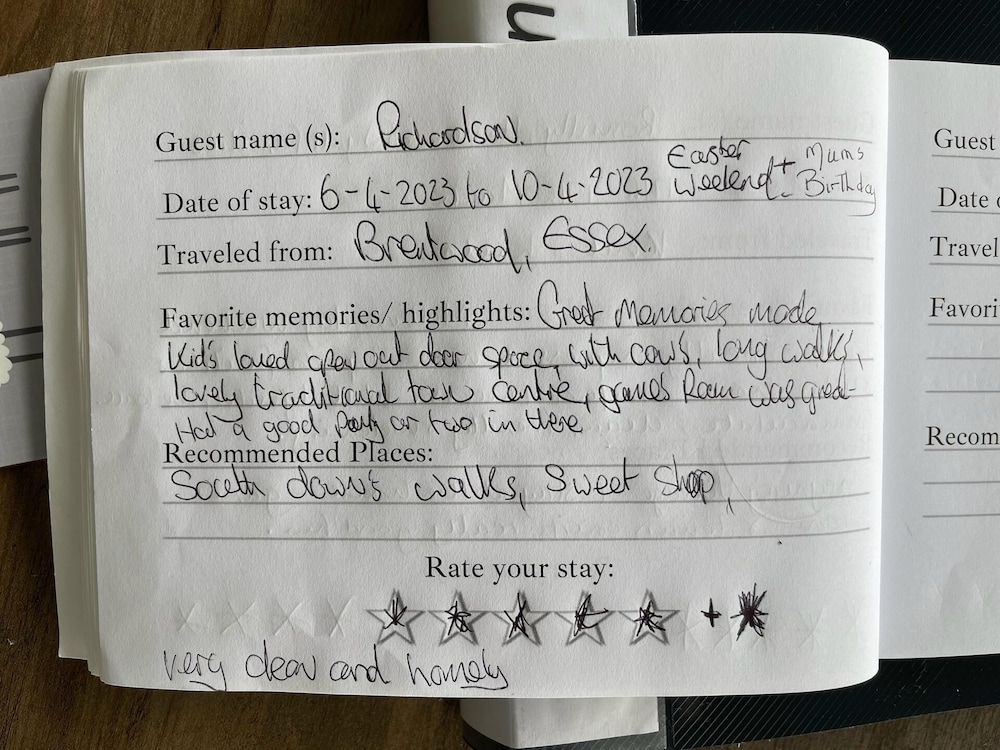 n
Guest name (s): Richardson.
Easter + Mums
Date of stay: 6-4-2023 to 10-4-2023 Weekend - Birthday
Traveled from: Brentwood, Essex.
Favorite memories/ highlights: Great Memories made
Kid's loved open out door space, with cows, long walks,
lovely traditional town centre, games Room was great-
Had a good party or two in there
Recommended Places:
South down's walks, Sweet Shop,
Rate your stay:
+
very clean and homely
Guest
Date o
Travel
Favori
Recom